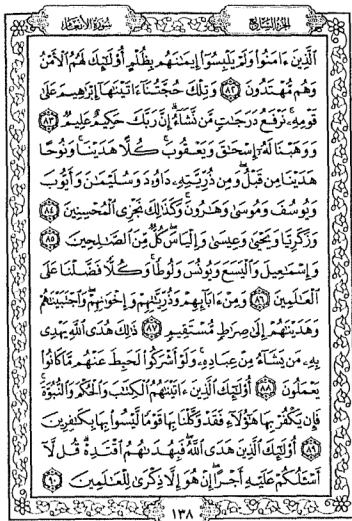 الجزء السابع
سورة الأنعام
ٱلَّذِينَ ءَامَنُوا۟ وَلَمْ يَلْبِسُوٓا۟ إِيمَٰنَهُم بِظُلْمٍ أُو۟لَٰٓئِكَ لَهُمُ ٱلْأَمْنُ
وَهُم مُّهْتَدُونَ ٨٢ وَتِلْكَ حُجَّتُنَآ ءَاتَيْنَٰهَآ إِبْرَٰهِيمَ عَلَىٰ
قَوْمِهِۦ نَرْفَعُ دَرَجَٰتٍ مَّن نَّشَآءُ إِنَّ رَبَّكَ حَكِيمٌ عَلِيمٌ ٨٣
وَوَهَبْنَا لَهُۥٓ إِسْحَٰقَ وَيَعْقُوبَ كُلًّا هَدَيْنَا وَنُوحًا
هَدَيْنَا مِن قَبْلُ وَمِن ذُرِّيَّتِهِۦ دَاوُۥدَ وَسُلَيْمَٰنَ وَأَيُّوبَ
وَيُوسُفَ وَمُوسَىٰ وَهَٰرُونَ وَكَذَٰلِكَ نَجْزِى ٱلْمُحْسِنِينَ ٨٤
وَزَكَرِيَّا وَيَحْيَىٰ وَعِيسَىٰ وَإِلْيَاسَ كُلٌّ مِّنَ ٱلصَّٰلِحِينَ ٨٥
وَإِسْمَٰعِيلَ وَٱلْيَسَعَ وَيُونُسَ وَلُوطًا وَكُلًّا فَضَّلْنَا عَلَى
ٱلْعَٰلَمِينَ ٨٦ وَمِنْ ءَابَآئِهِمْ وَذُرِّيَّٰتِهِمْ وَإِخْوَٰنِهِمْ وَٱجْتَبَيْنَٰهُمْ
وَهَدَيْنَٰهُمْ إِلَىٰ صِرَٰطٍ مُّسْتَقِيمٍ ٨٧ ذَٰلِكَ هُدَى ٱللَّهِ يَهْدِى
بِهِۦ مَن يَشَآءُ مِنْ عِبَادِهِۦ وَلَوْ أَشْرَكُوا۟ لَحَبِطَ عَنْهُم مَّا كَانُوا۟
يَعْمَلُونَ ٨٨ أُو۟لَٰٓئِكَ ٱلَّذِينَ ءَاتَيْنَٰهُمُ ٱلْكِتَٰبَ وَٱلْحُكْمَ وَٱلنُّبُوَّةَ
فَإِن يَكْفُرْ بِهَا هَٰٓؤُلَآءِ فَقَدْ وَكَّلْنَا بِهَا قَوْمًا لَّيْسُوا۟ بِهَا بِكَٰفِرِينَ
٨٩ أُو۟لَٰٓئِكَ ٱلَّذِينَ هَدَى ٱللَّهُ فَبِهُدَىٰهُمُ ٱقْتَدِهْ قُل لَّآ
أَسْـَٔلُكُمْ عَلَيْهِ أَجْرًا إِنْ هُوَ إِلَّا ذِكْرَىٰ لِلْعَٰلَمِينَ ٩٠
١٣٨